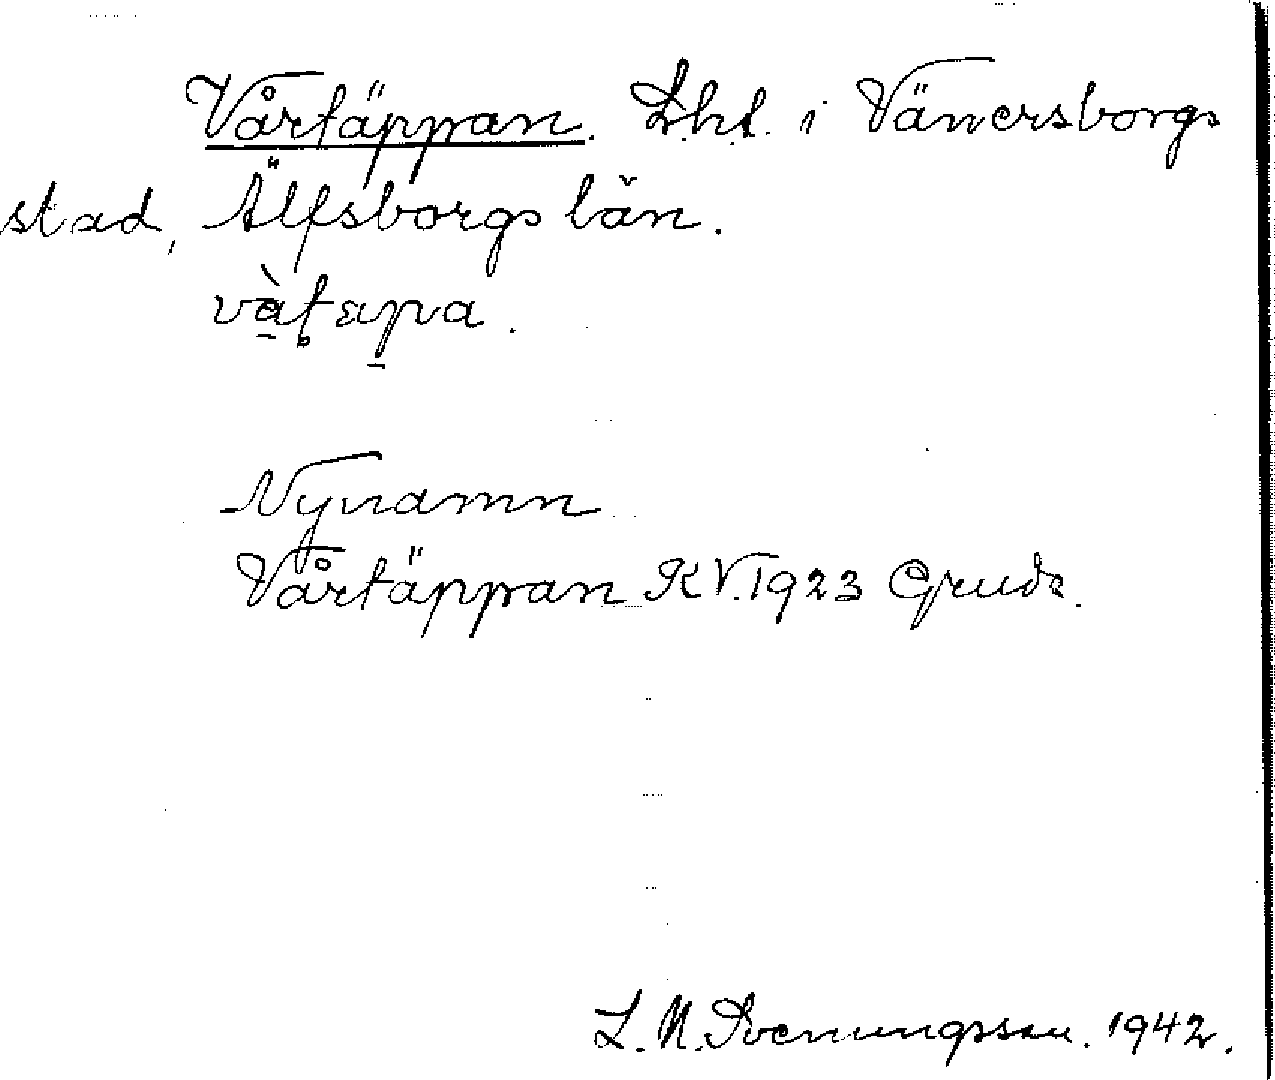 Vårtäppan. Lht. i Vänersborgs
stad, Älfsborgs län.
Nynamn
Vårtäppan KV. 1923 Grudz.
L. N. Svenungsson. 1942.